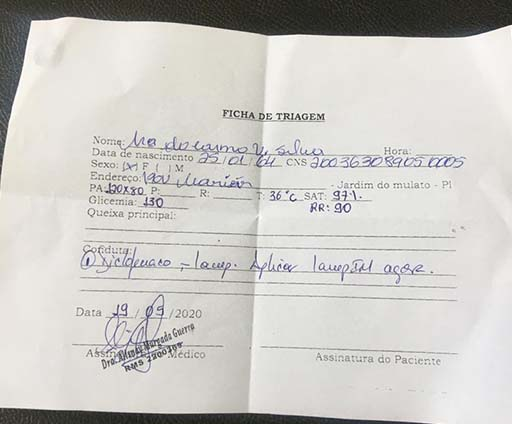 FICHA DE TRIAGEM
Nome: Ma do carmo V Silva Hora:
Data de nascimento 25/01/64 CNS
Sexo: (x) F ( ) M
Endereço: - Jardim do mulato - PI
PA 120x80 P: R: T: 36°c SAT: 97%
Glicemia: 130 RR: 90
Queixa principal:
Conduta:
① Diclofenaco - 1amp. Aplicar 1amp IM agora.
Data 19 / 09 / 2020
Assinatura do Médico Assinatura do Paciente